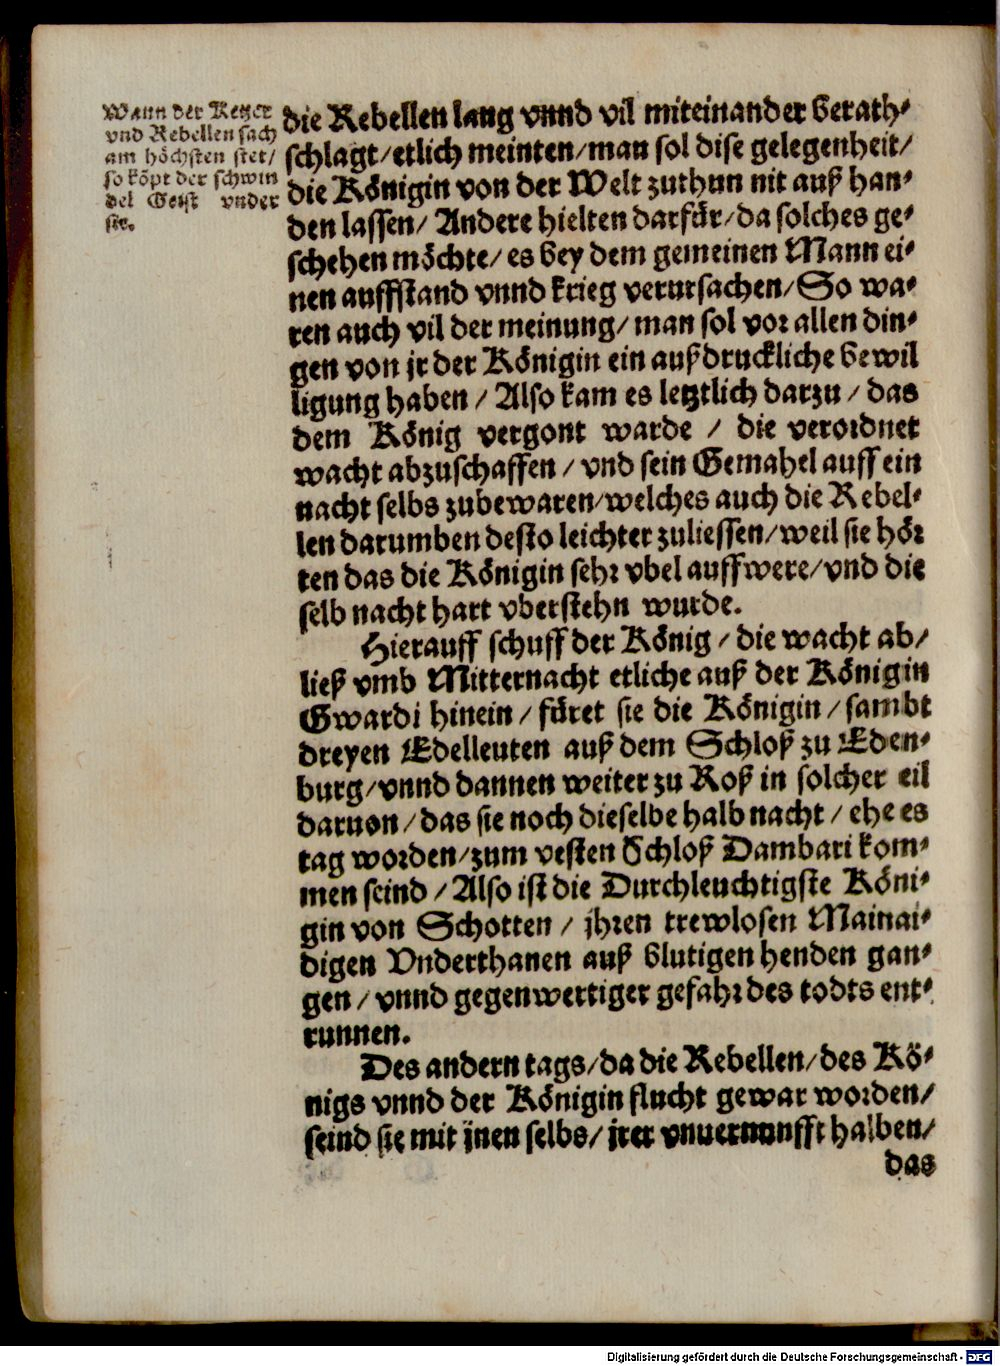 Wann der Ketzer
vnd Rebellen sach
am höchsten stet/
so köpt der schwin
del Geist vnder
sie.
die Rebellen lang vnnd vil miteinander berath-
schlagt/etlich meinten/man sol dise gelegenheit/
die Königin von der Welt zuthun nit auß han-
den lassen/ Andere hielten darfür/da solches ge-
schehen möchte/es bey dem gemeinen Mann ei-
nen auffstand vnnd krieg verursachen/So wa-
ren auch vil der meinung/man sol vor allen din-
gen von jr der Königin ein außdruckliche bewil
ligung haben / Also kam es letztlich darzu / das
dem König vergont warde / die verordnet
wacht abzuschaffen / vnd sein Gemahel auff ein
nacht selbs zubewaren/welches auch die Rebel-
len darumben desto leichter zuliessen/weil sie hör
ten das die Königin sehr vbel auffwere/vnd die
selb nacht hart vberstehn wurde.
Hierauff schuff der König / die wacht ab/
ließ vmb Mitternacht etliche auß der Königin
Gwardi hinein / füret sie die Königin / sambt
dreyen Edelleuten auß dem Schloß zu Eden-
burg/vnnd dannen weiter zu Roß in solcher eil
daruon / das sie noch dieselbe halb nacht / ehe es
tag worden/zum vesten Schloß Dambari kom-
men seind / Also ist die Durchleuchtigste Köni-
gin von Schotten / jhren trewlosen Mainai-
digen Vnderthanen auß blutigen henden gan-
gen / vnnd gegenwertiger gefahr des todts ent-
runnen.
Des andern tags/da die Rebellen/des Kö-
nigs vnnd der Königin flucht gewar worden/
seind sie mit jnen selbs/jrer vnuernunfft halben/
das
Digitalisierung gefördert durch die Deutsche Forschungsgemeinschaft - DFG